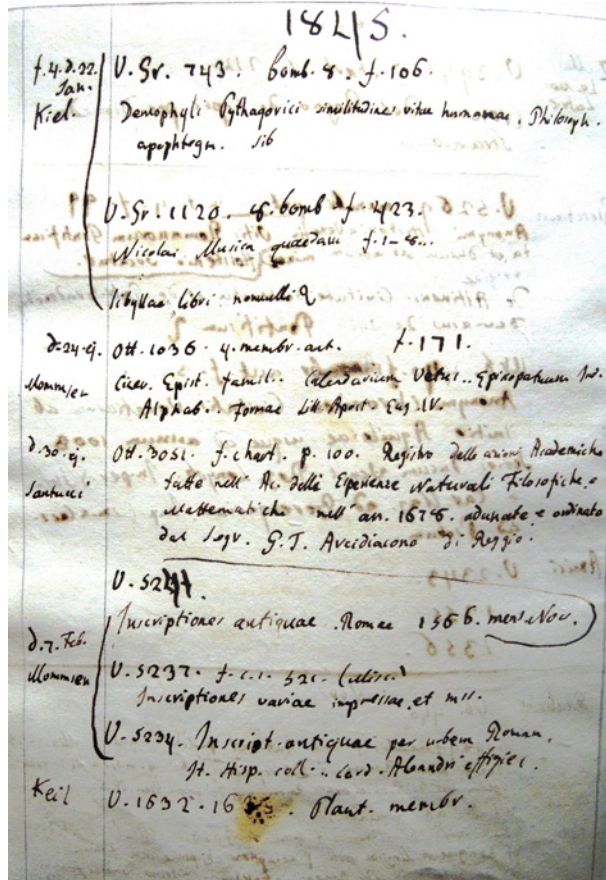 1845.
f. 4. d. 22. Jan. Kiel.
V. Gr. 743. bomb. 8. f. 106.
Demophyli Pythagorici similitudines vitae humanae, Philosoph.
apophtegm. Sib
V. Gr. 1120. 8. bomb f. 423.
Nicolai Musica quaedam f. 1-8...
Sibyllae libri nonnulli
d. 24. ej. Mommsen
Ott. 1036. 4. membr. ant. f. 171.
Cicer. Epist. famil.. Calendarium Vetus.. Episopatuum Ind.
Alphab.. formae Litt Apost Eug. IV.
d. 30. ej. Santucci
Ott. 3051. f. chart. p. 100. Registro delle azioni Academiche
fatte nell' Ac. delle Esperienze Naturali Filosofiche, e
Mattematiche nell' an. 1678. adunate e ordinate
dal Segr. G. T. Arcidiacono di Reggio.
V. 5244.
Inscriptiones antiquae. Romae 1566. mens. Nov.
d. 7. Feb. Mommsen
V. 5237. f. c. s. 521. (Misc.)
Inscriptiones variae impressae, et mss.
V. 5234. Inscript. antiquae per urbem Roman.
It. Hisp. coll.. Card. Alexandri effigies.
Keil
V. 1632. Plaut. membr.